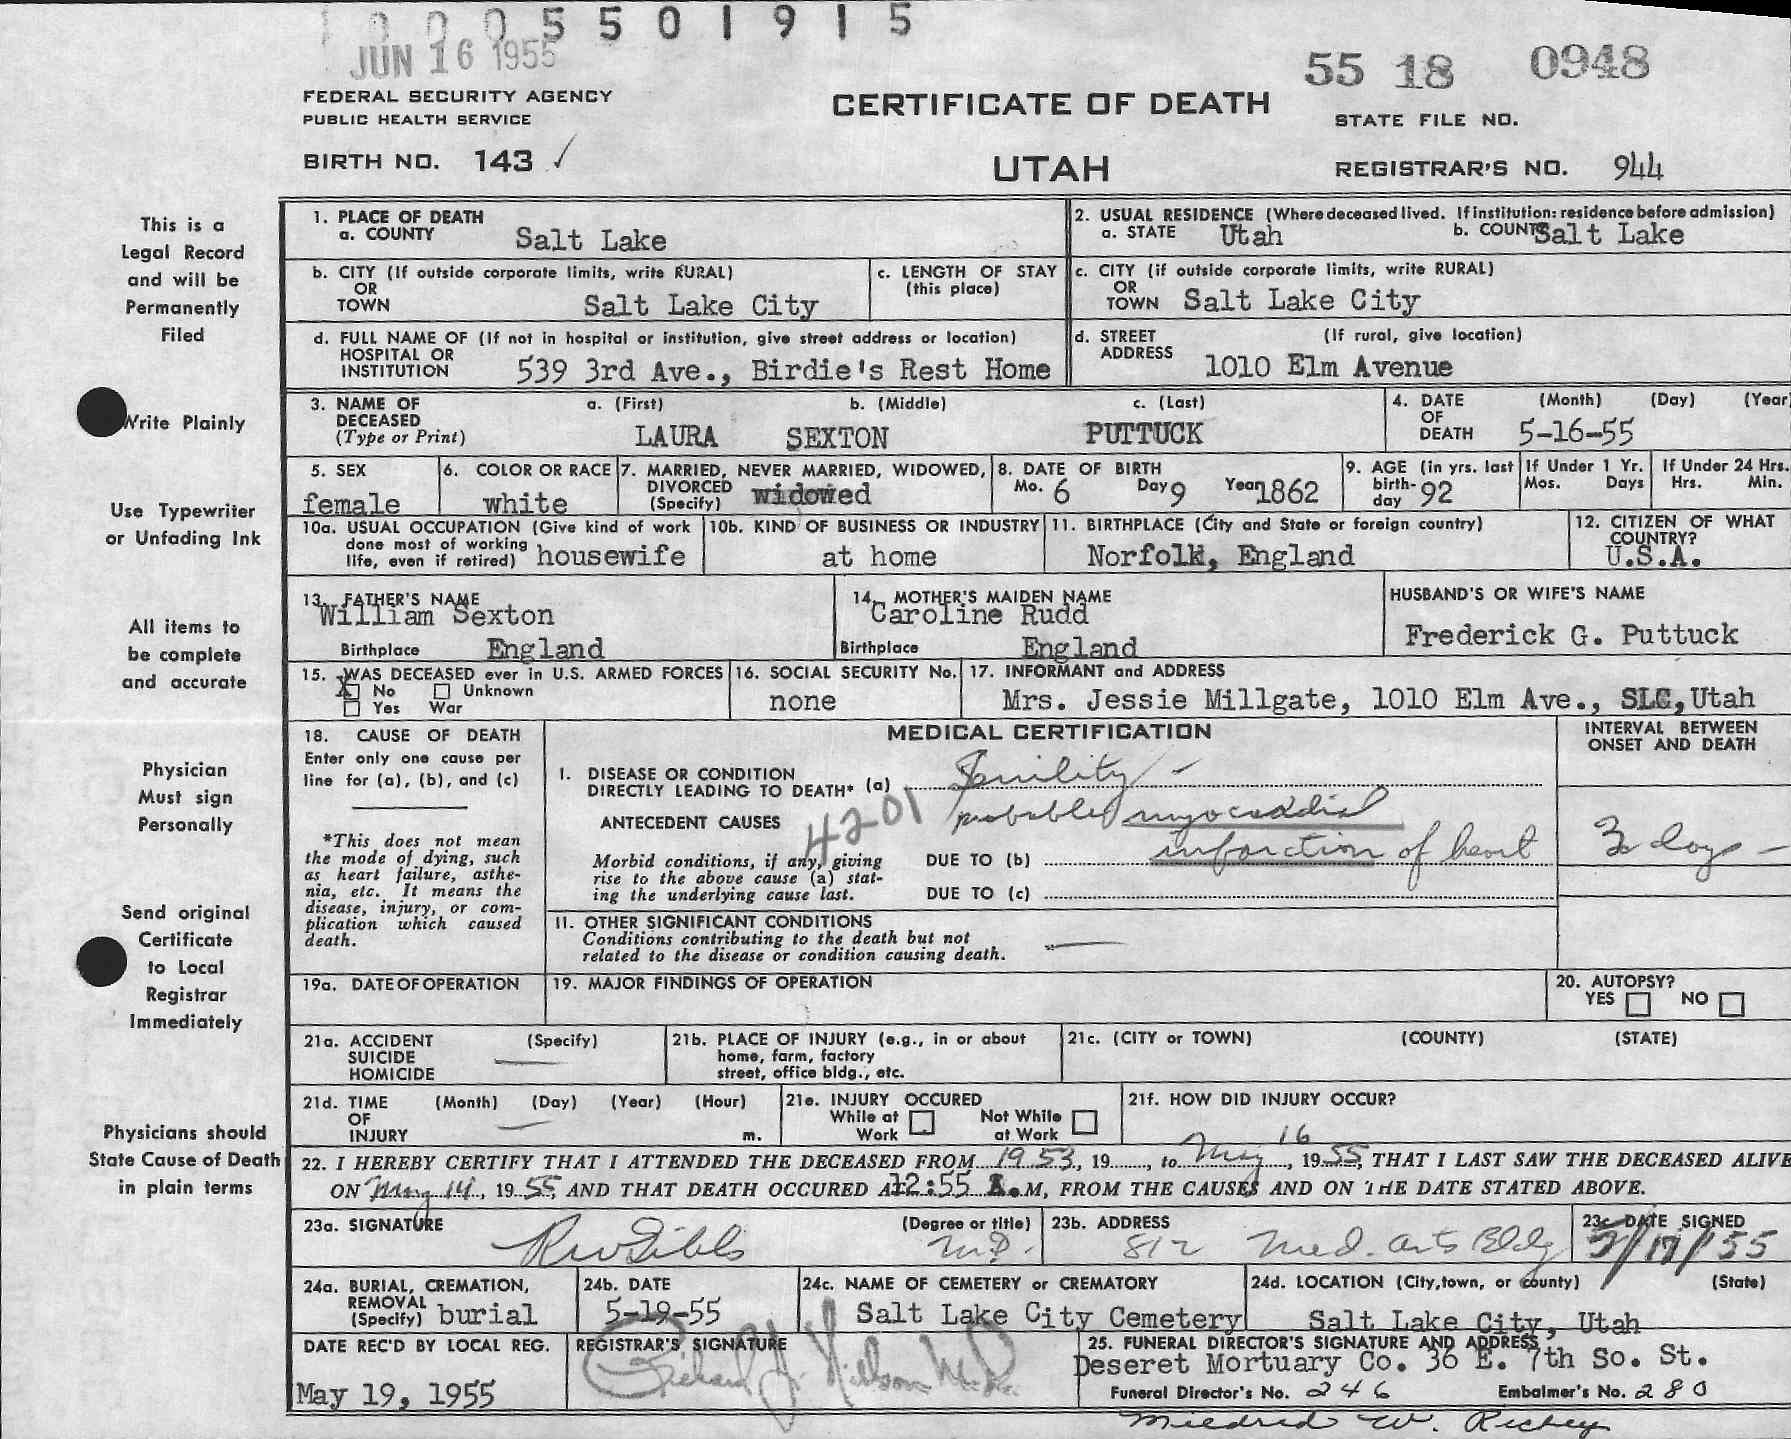 1000 5501915
JUN 16 1955
55 18 0948
FEDERAL SECURITY AGENCY
PUBLIC HEALTH SERVICE
CERTIFICATE OF DEATH
STATE FILE NO.
BIRTH NO. 143 ✓
UTAH
REGISTRAR'S NO. 944
This is a
Legal Record
and will be
Permanently
Filed
Write Plainly
Use Typewriter
or Unfading Ink
All items to
be complete
and accurate
Physician
Must sign
Personally
Send original
Certificate
to Local
Registrar
Immediately
Physicians should
State Cause of Death
in plain terms
1. PLACE OF DEATH
a. COUNTY Salt Lake
2. USUAL RESIDENCE (Where deceased lived. If institution: residence before admission)
a. STATE Utah b. COUNTY Salt Lake
b. CITY (If outside corporate limits, write RURAL)
OR
TOWN Salt Lake City
c. LENGTH OF STAY
(this place)
c. CITY (if outside corporate limits, write RURAL)
OR
TOWN Salt Lake City
d. FULL NAME OF (If not in hospital or institution, give street address or location)
HOSPITAL OR
INSTITUTION 539 3rd Ave., Birdie's Rest Home
d. STREET (If rural, give location)
ADDRESS 1010 Elm Avenue
3. NAME OF a. (First) b. (Middle) c. (Last)
DECEASED
(Type or Print) LAURA SEXTON PUTTUCK
4. DATE (Month) (Day) (Year)
OF
DEATH 5-16-55
5. SEX
female
6. COLOR OR RACE
white
7. MARRIED, NEVER MARRIED, WIDOWED,
DIVORCED
(Specify) widowed
8. DATE OF BIRTH
Mo. 6 Day 9 Year 1862
9. AGE (in yrs. last
birth-
day 92
If Under 1 Yr.
Mos. Days
If Under 24 Hrs.
Hrs. Min.
10a. USUAL OCCUPATION (Give kind of work
done most of working
life, even if retired) housewife
10b. KIND OF BUSINESS OR INDUSTRY
at home
11. BIRTHPLACE (City and State or foreign country)
Norfolk, England
12. CITIZEN OF WHAT
COUNTRY?
U.S.A.
13. FATHER'S NAME
William Sexton
Birthplace England
14. MOTHER'S MAIDEN NAME
Caroline Rudd
Birthplace England
HUSBAND'S OR WIFE'S NAME
Frederick G. Puttuck
15. WAS DECEASED ever in U.S. ARMED FORCES
X No Unknown
Yes War
16. SOCIAL SECURITY No.
none
17. INFORMANT and ADDRESS
Mrs. Jessie Millgate, 1010 Elm Ave., SLC, Utah
18. CAUSE OF DEATH
Enter only one cause per
line for (a), (b), and (c)
*This does not mean
the mode of dying, such
as heart failure, asthe-
nia, etc. It means the
disease, injury, or com-
plication which caused
death.
MEDICAL CERTIFICATION
INTERVAL BETWEEN
ONSET AND DEATH
I. DISEASE OR CONDITION
DIRECTLY LEADING TO DEATH* (a) Senility -
ANTECEDENT CAUSES 4201 probable myocardial
Morbid conditions, if any, giving
rise to the above cause (a) stat-
ing the underlying cause last.
DUE TO (b) infarction of heart
3 days -
DUE TO (c)
II. OTHER SIGNIFICANT CONDITIONS
Conditions contributing to the death but not
related to the disease or condition causing death.
19a. DATE OF OPERATION
19. MAJOR FINDINGS OF OPERATION
20. AUTOPSY?
YES NO
21a. ACCIDENT (Specify)
SUICIDE
HOMICIDE
21b. PLACE OF INJURY (e.g., in or about
home, farm, factory
street, office bldg., etc.
21c. (CITY or TOWN) (COUNTY) (STATE)
21d. TIME (Month) (Day) (Year) (Hour)
OF
INJURY m.
21e. INJURY OCCURED
While at Not While
Work at Work
21f. HOW DID INJURY OCCUR?
22. I HEREBY CERTIFY THAT I ATTENDED THE DECEASED FROM 1953, 19....., to May 16, 1955, THAT I LAST SAW THE DECEASED ALIVE
ON May 14, 1955, AND THAT DEATH OCCURED AT 12:55 A.M, FROM THE CAUSES AND ON THE DATE STATED ABOVE.
23a. SIGNATURE (Degree or title)
RW Gibbs M.D.
23b. ADDRESS
812 Med. Arts Bldg
23c. DATE SIGNED
5/17/55
24a. BURIAL, CREMATION,
REMOVAL
(Specify) burial
24b. DATE
5-19-55
24c. NAME OF CEMETERY or CREMATORY
Salt Lake City Cemetery
24d. LOCATION (City, town, or county) (State)
Salt Lake City, Utah
DATE REC'D BY LOCAL REG.
May 19, 1955
REGISTRAR'S SIGNATURE
Richard J. Nelson M.D.
25. FUNERAL DIRECTOR'S SIGNATURE AND ADDRESS
Deseret Mortuary Co. 36 E. 7th So. St.
Funeral Director's No. 246 Embalmer's No. 280
Mildred W. Richey